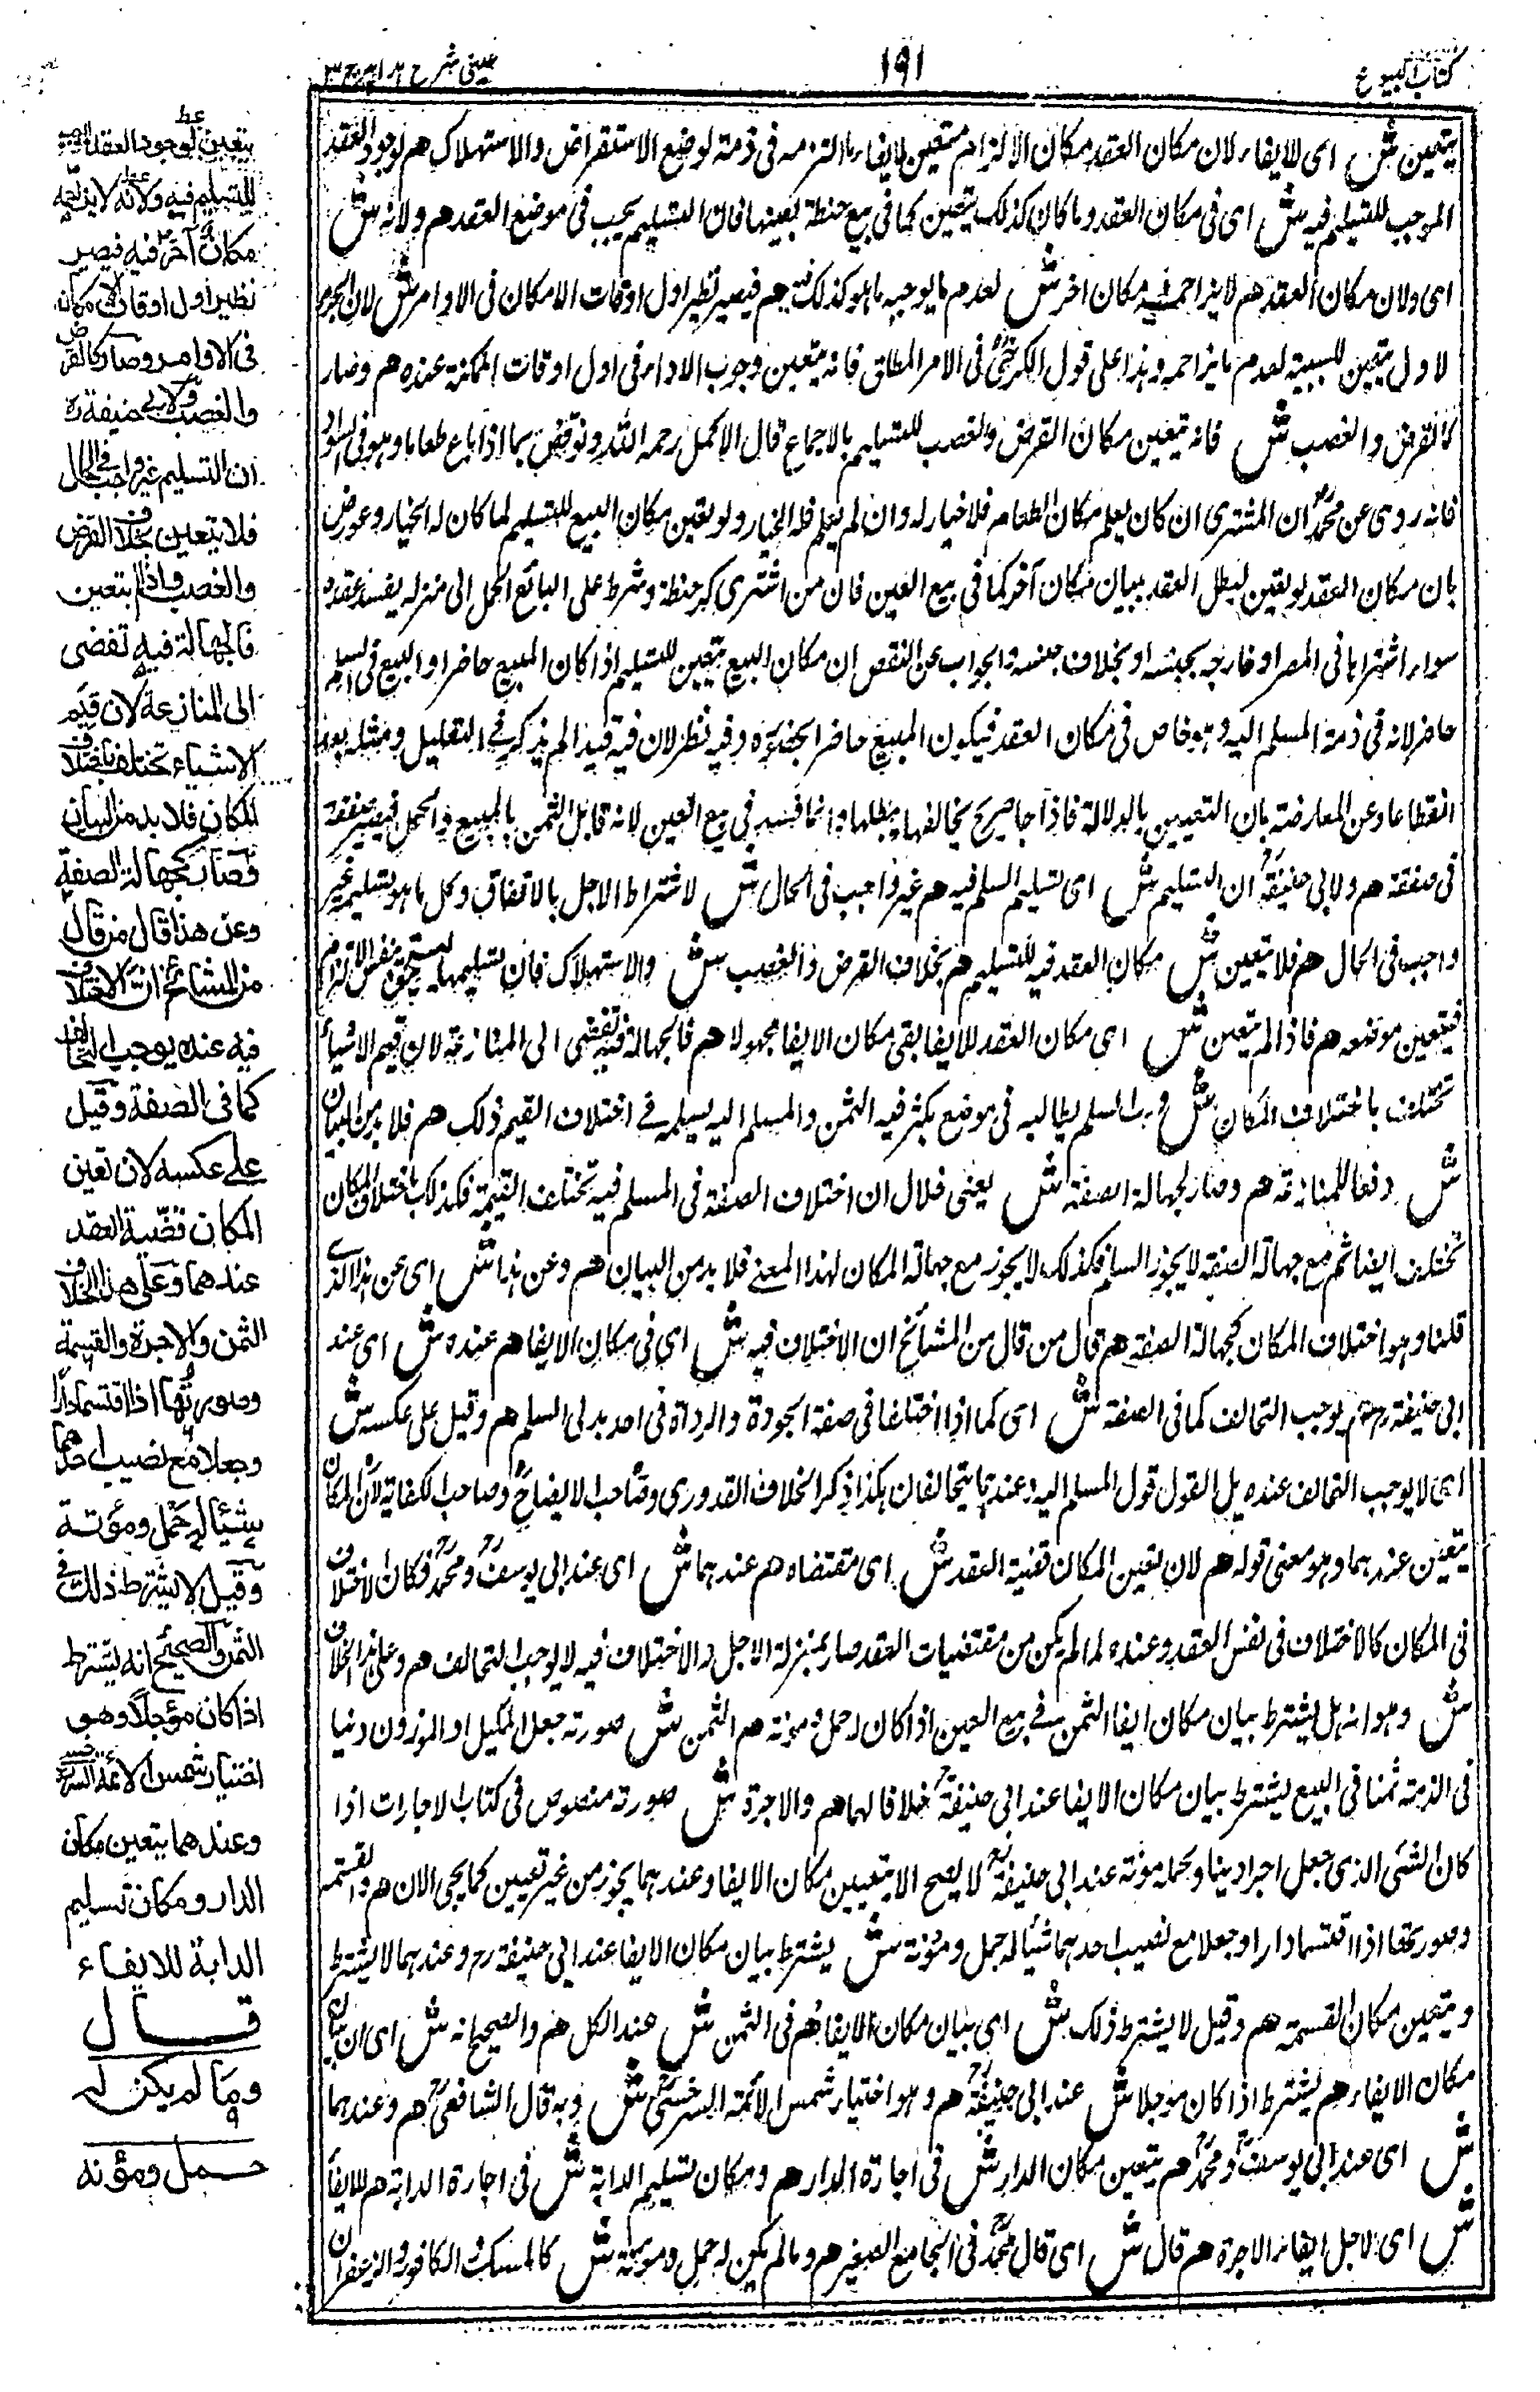 كتاب البيوع
١٩١
عينى شرح هدايه ج ٣
يتعين ش اى للايفاء لان مكان العقد مكان الالتزام فتعين لايفاء ما التزمه فى ذمته لوضع الاستقراض والاستهلاك هم لوجود العقد
الموجب للتسليم فيه ش اى فى مكان العقد وما كان كذلك يتعين كما فى بيع حنطة بعينها فان التسليم يجب فى موضع العقد هم ولانه ش
اى ولان مكان العقد هم لا يزاحمه مكان اخر ش لعدم ما يوجبه ما هو كذلك هم فيصير نظير اول اوقات الامكان فى الاوامر ش لان الجزء
لاول يتعين للسببية لعدم ما يزاحمه وهذا على قول الكرخى فى الامر المطلق فانه يتعين وجوب الاداء فى اول اوقات المكنة عنده هم وصار
كالقرض والغصب ش فانه يتعين مكان القرض والغصب للتسليم بالاجماع قال الاكمل رحمه الله ونوقض بما اذا باع طعاما وهو فى السواد
فانه روى عن محمد ان المشترى ان كان يعلم مكان الطعام فلا خيار له وان لم يعلم فله الخيار ولو يقين مكان البيع للتسليم لما كان له الخيار وعورض
بان مكان العقد لو يقين لبطل العقد ببيان مكان آخر كما فى بيع العين فان من اشترى كر حنطة وشرط على البائع الحمل الى منزله يفسد عقده
سواء اشتراها فى المصر او خارجه بجنسه او بخلاف جنسه والجواب عن النقض ان مكان البيع يتعين للتسليم اذا كان المبيع حاضرا والبيع فى السلم
حاضر لانه فى ذمة المسلم اليه وهو خاص فى مكان العقد فيكون المبيع حاضرا بحضوره وفيه نظر لان فيه قيد الم يذكر فى التعليل ومثله يعد
انقطاعا وعن المعارضة بان التعيين بالدلالة فاذا جاء صريح يخالفها يبطلها وانما فسد فى بيع العين لانه قابل الثمن بالمبيع والحمل فيصير صفقة
فى صفقة هم ولابى حنيفة ان التسليم ش اى تسليم المسلم فيه هم غير واجب فى الحال ش لاشتراط الاجل بالاتفاق وكل ما هو تسليمه غير
واجب فى الحال هم فلا يتعين ش مكان العقد فيه للتسليم هم بخلاف القرض والغصب ش والاستهلاك فان تسليمها يستحق بنفس الالتزام
فيتعين موضعه هم فاذا لم يتعين ش اى مكان العقد للايفا بقى مكان الايفا مجهولا هم فالجهالة فيه تفضى الى المنازعة لان قيم الاشياء
تختلف باختلاف المكان ش ورب السلم يطالبه فى موضع يكثر فيه الثمن والمسلم اليه يسلمه فى اختلاف القيم ذلك هم فلا بد من البيان
ش دفعا للمنازعة هم وصار كجهالة الصفة ش يعنى فلال ان اختلاف الصفة فى المسلم فيه تختلف القيمة فكذلك باختلاف المكان
تختلف ايضا ثم مع جهالة الصفة لا يجوز السلم فكذلك لا يجوز مع جهالة المكان لهذا المعنى فلا بد من البيان هم وعن هذا ش اى عن هذا الذى
قلنا وهو اختلاف المكان كجهالة الصفة هم قال من قال من المشائخ ان الاختلاف فيه ش اى فى مكان الايفا هم عنده ش اى عند
ابى حنيفة رح هم يوجب التحالف كما فى الصفة ش اى كما اذا اختلفا فى صفة الجودة والرداءة فى احد بدلى السلم هم وقيل على عكسه ش
اى لا يوجب التحالف عنده بل القول قول المسلم اليه وعندهما يتحالفان هكذا ذكر الخلاف القدورى وصاحب الايضاح وصاحب الكفاية لان المكان
يتعين عندهما وهو معنى قوله هم لان يعين المكان قضية العقد ش اى مقتضاه هم عندهما ش اى عند ابى يوسف ومحمد فكان الاختلاف
فى المكان كالاختلاف فى نفس العقد وعنده لما لم يكن من مقتضيات العقد صار بمنزلة الاجل والاختلاف فيه لا يوجب التحالف هم وعلى هذا الخلاف
ش وهو انه هل يشترط بيان مكان ايفا الثمن فى بيع العين اذا كان له حمل ومونة هم الثمن ش صورته جعل المكيل او الموزون دينا
فى الذمة ثمنا فى البيع يشترط بيان مكان الايفا عند ابى حنيفة خلافا لهما هم والاجرة ش صورته منصوص فى كتاب الاجارات اذا
كان الشئ الذى جعل اجرا دينا وحمله مونة عند ابى حنيفة لا يصح الا بتعيين مكان الايفا وعندهما يجوز من غير تعيين كما يجئ الان هم والقسمة
وصورتها اذا اقتسما دارا وجعلا مع نصيب احدهما شيئا له حمل ومونة ش يشترط بيان مكان الايفا عند ابى حنيفة رح وعندهما لا يشترط
ويتعين مكان القسمة هم وقيل لا يشترط ذلك ش اى بيان مكان الايفا هم فى الثمن ش عند الكل هم والصحيح انه ش اى ان بيان
مكان الايفاء هم يشترط اذا كان موجلا ش عند ابى حنيفة هم وهو اختيار شمس الائمة السرخسى ش وبه قال الشافعى هم وعندهما
ش اى عند ابى يوسف ومحمد هم يتعين مكان الدار ش فى اجارة الدار هم ومكان تسليم الدابة ش فى اجارة الدابة هم للايفا
ش اى لاجل ايفاء الاجرة هم قال ش اى قال محمد فى الجامع الصغير هم وما لم يكن له حمل ومونة ش كالمسك والكافور والزعفران
يتعين لوجود العقد الموجب
للتسليم فيه ولانه لا يزاحمه
مكان آخر فيه فيصير
نظير اول اوقات الامكان
فى الاوامر وصار كالقرض
والغصب ولابى حنيفة ره
ان التسليم غير واجب فى الحال
فلا يتعين بخلاف القرض
والغصب واذا لم يتعين
فالجهالة فيه تفضى
الى المنازعة لان قيم
الاشياء تختلف باختلاف
المكان فلا بد من البيان
وصار كجهالة الصفة
وعن هذا قال من قال
من المشائخ ان الاختلاف
فيه عنده يوجب التحالف
كما فى الصفة وقيل
على عكسه لان تعين
المكان قضية العقد
عندهما وعلى هذا الخلاف
الثمن والاجرة والقسمة
وصورتها اذا اقتسما دارا
وجعلا مع نصيب احدهما
شيئا له حمل ومؤنة
وقيل لا يشترط ذلك فى
الثمن والصحيح انه يشترط
اذا كان مؤجلا وهو
اختيار شمس الائمة السرخسى
وعندهما يتعين مكان
الدار ومكان تسليم
الدابة للايفاء
قال
وما لم يكن له
حمل ومؤنة